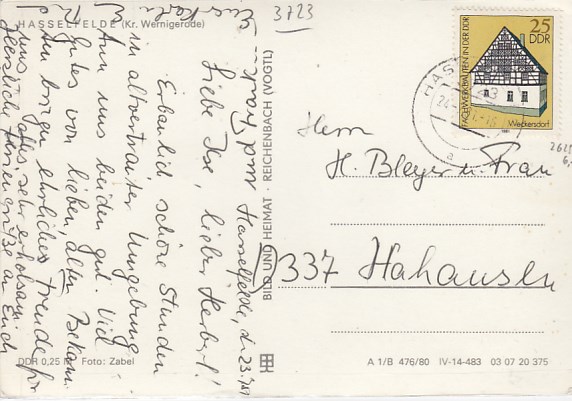 HASSELFELDE (Kr. Wernigerode)
3723
Hasselfelde, d. 23.
Liebe Ilse, lieber Herbert!
Erbaulich schöne Stunden
in altvertrauter Umgebung
tun uns beiden gut. Viel
Gutes von lieben, alten Bekann-
ten bringen ehrliches Freude für
uns, alles sehr erholsam.
Herzliche Feriengrüße an Euch
DDR 0,25 M Foto: Zabel
BILD UND HEIMAT · REICHENBACH (VOGTL)
25
DDR
FACHWERKBAUTEN IN DER DDR
Weckersdorf
1981
a
Herrn
H. Bleyer u. Frau
3337 Hahausen
A 1/B 476/80 IV-14-483 03 07 20 375